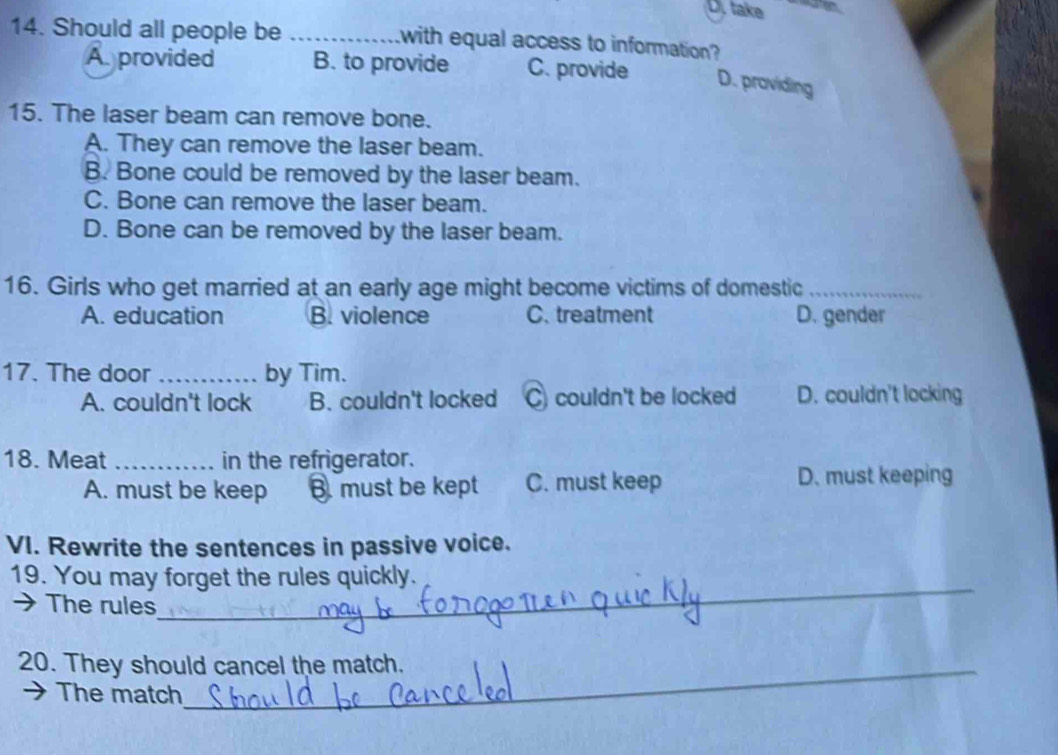 D. take
14. Should all people be ..............with equal access to information?
A. provided B. to provide C. provide D. providing
15. The laser beam can remove bone.
A. They can remove the laser beam.
B. Bone could be removed by the laser beam.
C. Bone can remove the laser beam.
D. Bone can be removed by the laser beam.
16. Girls who get married at an early age might become victims of domestic ..................
A. education B. violence C. treatment D. gender
17. The door ............ by Tim.
A. couldn't lock B. couldn't locked C. couldn't be locked D. couldn't locking
18. Meat ............ in the refrigerator.
A. must be keep B. must be kept C. must keep D. must keeping
VI. Rewrite the sentences in passive voice.
19. You may forget the rules quickly.
→ The rules may be forogotten quickly
20. They should cancel the match.
→ The match should be canceled